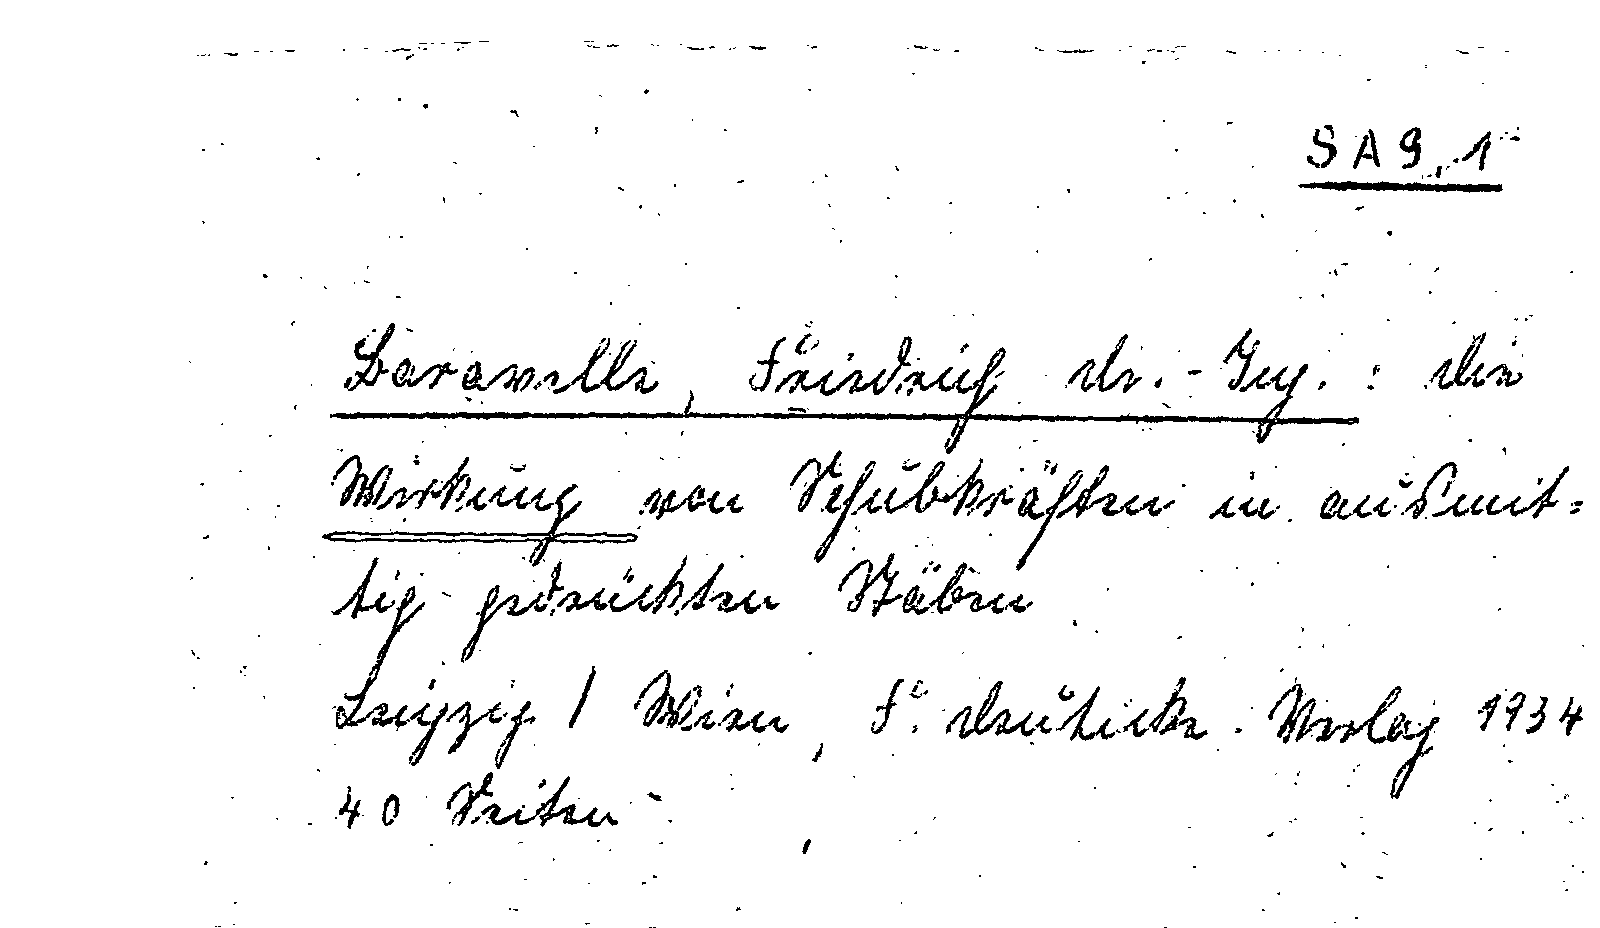 SA 9,1
Baravalle, Friedrich Dr.-Ing. : Die
Wirkung von Schubkräften in ausmit=
tig gedrückten Stäben
Leipzig / Wien, F. Deuticke. Verlag 1934
40 Seiten